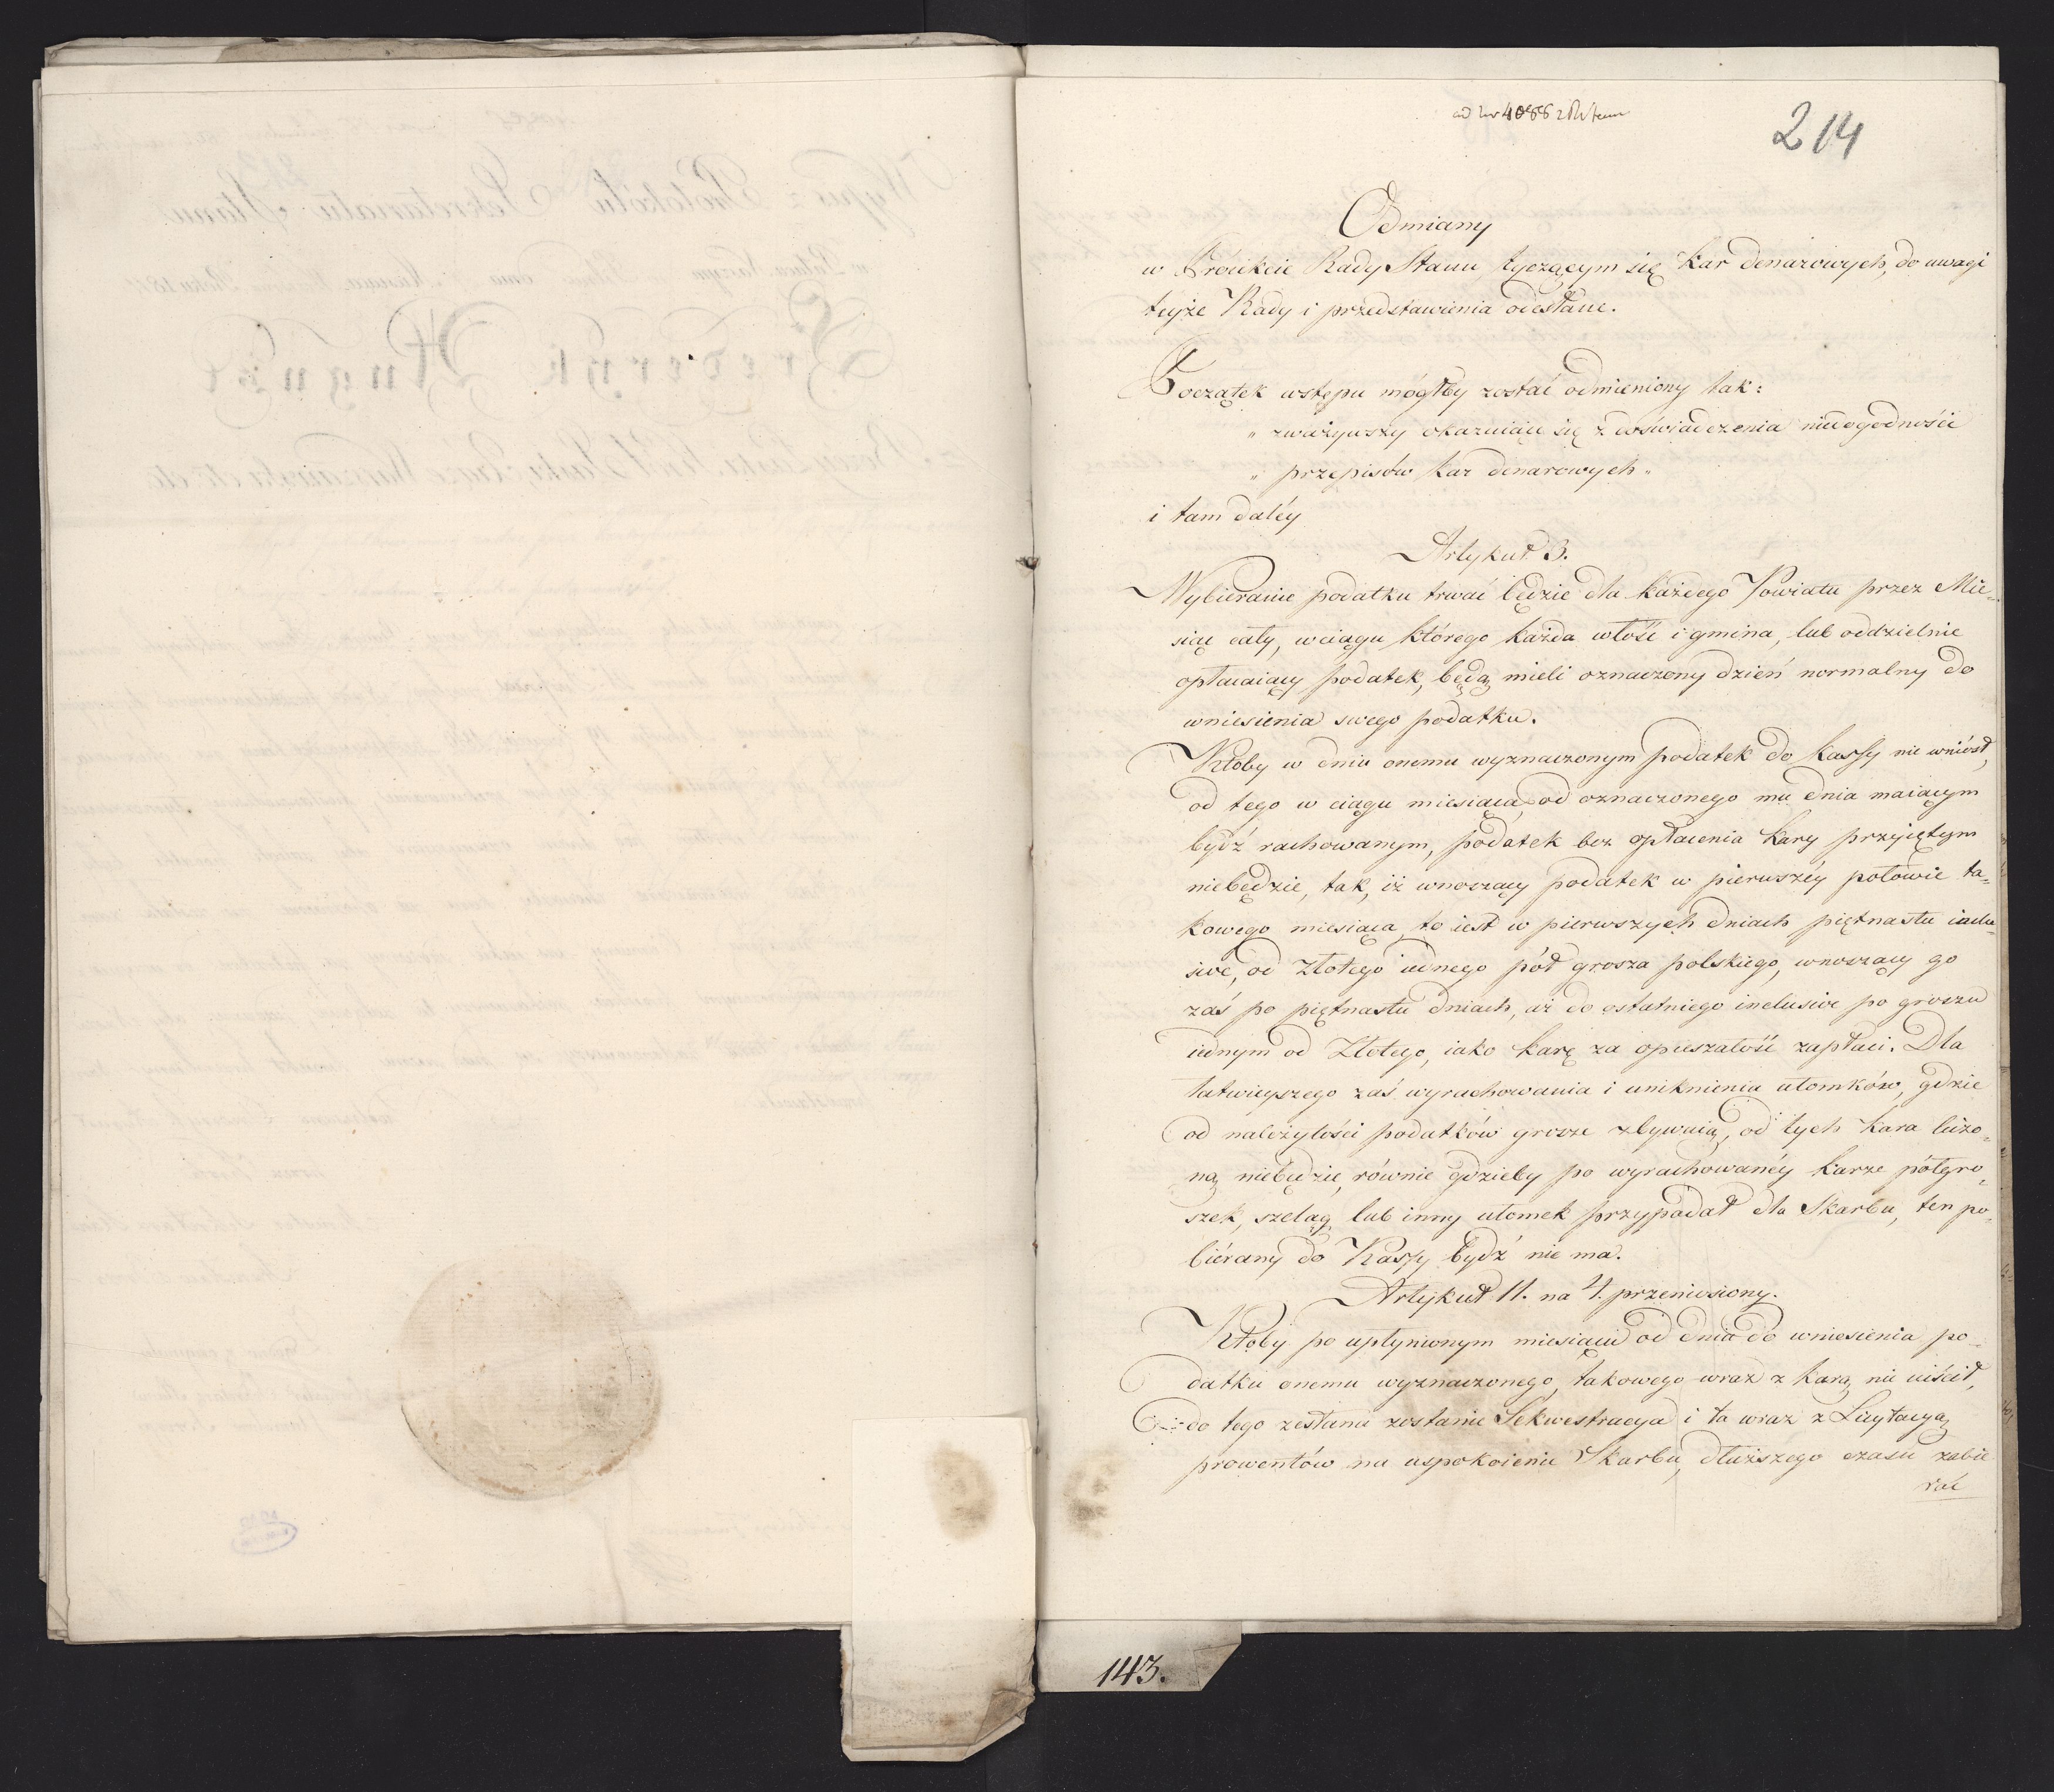 ad Nr 4088
214
Odmiany
w Proiekcie Rady Stanu tyczącym się kar denarowych, do uwagi
teyże Rady i przedstawienia odesłane.
Początek wstępu mógłby zostać odmieniony tak:
„ zważywszy okazuiące się z doświadczenia niedogodnośći
„ przepisów kar denarowych „
i tam daléy
Artykuł 3.
Wybieranie podatku trwać będzie dla każdego Powiatu przez Mie„
siąc cały, wciągu którego każda włość i gmina, lub oddzielnie
opłacaiący podatek, będą mieli oznaczony dzień normalny do
wniesienia swego podatku.
Ktoby w dniu onemu wyznaczonym podatek do kassy nie wniósł,
od tego w ciągu miesiąca, od oznaczonego mu dnia maiącym
bydź rachowanym, podatek bez opłacenia kary przyiętym
niebędzie, tak, iż wnoszący podatek w pierwszéy połowie ta„
kowego miesiąca, to iest w pierwszych dniach piętnastu inclu„
sive, od Złotego iednego pół grosza polskiego, wnoszący go
zaś po piętnastu dniach, aż do ostatniego inclusive po groszu
iednym od Złotego, iako karę za opieszałość zapłaci. Dla
łatwieyszego zaś wyrachowania i uniknienia ułomków, gdzie
od należytości podatków grosze zbywaią, od tych kara liczo„
ną niebędzie, równie gdzieby po wyrachowanéy karze półgro„
szek, szeląg lub inny ułomek przypadał dla Skarbu, ten po„
biérany do Kassy bydź nie ma.
Artykuł 11. na 4. przeniesiony.
Ktoby po upłynionym miesiącu od dnia do wniesienia po„
datku onemu wyznaczonego, takowego wraz z karą nie uiścił,
do tego zesłana zostanie Sekwestracya i ta wraz z Licytacyą
prowentów na uspokoienie Skarbu, dłuższego czasu zabie
rać
143.